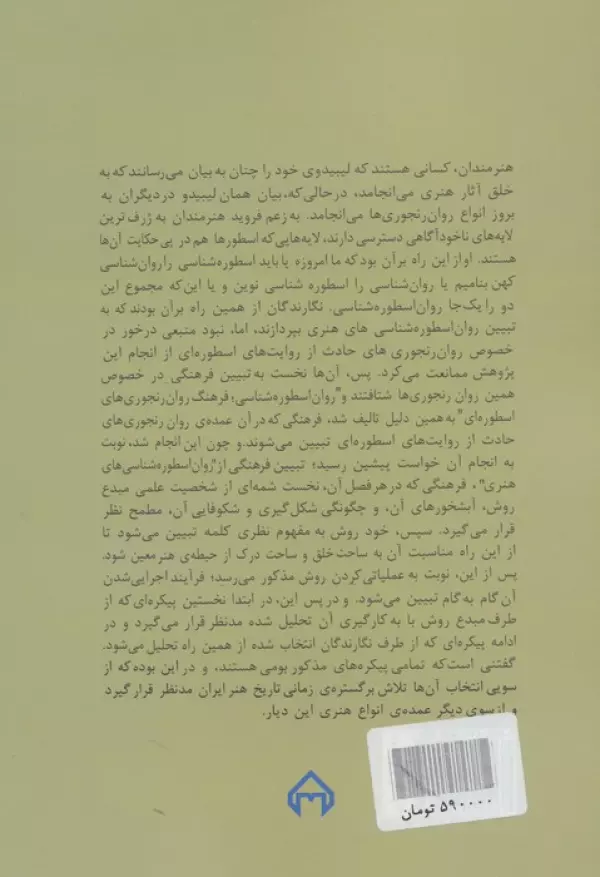 هنرمندان، کسانی هستند که لیبیدوی خود را چنان به بیان می‌رسانند که به
خلق آثار هنری می‌انجامد، درحالی‌که، بیان همان لیبیدو در دیگران به
بروز انواع روان‌رنجوری‌ها می‌انجامد. به زعم فروید هنرمندان به ژرف ترین
لایه‌های ناخودآگاهی دسترسی دارند، لایه‌هایی‌که اسطورها هم در پی حکایت آن‌ها
هستند. او از این راه بر آن بود که ما امروزه یا باید اسطوره‌شناسی را روان‌شناسی
کهن بنامیم یا روان‌شناسی را اسطوره شناسی نوین و یا این‌که مجموع این
دو را یک‌جا روان‌اسطوره‌شناسی. نگارندگان از همین راه برآن بودند که به
تبیین روان‌اسطوره‌شناسی های هنری بپردازند، اما، نبود منبعی درخور در
خصوص روان‌رنجوری های حادث از روایت‌های اسطوره‌ای از انجام این
پژوهش ممانعت می‌کرد. پس، آن‌ها نخست به تبیین فرهنگی در خصوص
همین روان رنجوری‌ها شتافتند و "روان‌اسطوره‌شناسی؛ فرهنگ روان‌رنجوری‌های
اسطوره‌ای" به همین دلیل تالیف شد، فرهنگی که در آن عمده‌ی روان رنجوری‌های
حادث از روایت‌های اسطوره‌ای تبیین می‌شوند.و چون این انجام شد، نوبت
به انجام آن خواست پیشین رسید؛ تبیین فرهنگی از "روان‌اسطوره‌شناسی‌های
هنری"، فرهنگی که در هر فصل آن، نخست شمه‌ای از شخصیت علمی مبدع
روش، آبشخورهای آن، و چگونگی شکل‌گیری و شکوفایی آن، مطمح نظر
قرار می‌گیرد. سپس، خود روش به مفهوم نظری کلمه تبیین می‌شود تا
از این راه مناسبت آن به ساحت خلق و ساحت درک از حیطه‌ی هنر معین شود.
پس از این، نوبت به عملیاتی‌کردن روش مذکور می‌رسد؛ فرآیند اجرایی‌شدن
آن گام به گام تبیین می‌شود. و در پس این، در ابتدا نخستین پیکره‌ای که از
طرف مبدع روش با به کارگیری آن تحلیل شده مدنظر قرار می گیرد و در
ادامه پیکره‌ای که از طرف نگارندگان انتخاب شده از همین راه تحلیل می‌شود.
گفتنی است که تمامی پیکره‌های مذکور بومی هستند، و در این بوده که از
سویی انتخاب آن‌ها تلاش بر گستره‌ی زمانی تاریخ هنر ایران مدنظر قرار گیرد
و از سوی دیگر عمده‌ی انواع هنری این دیار.
۵۹۰۰۰۰ تومان